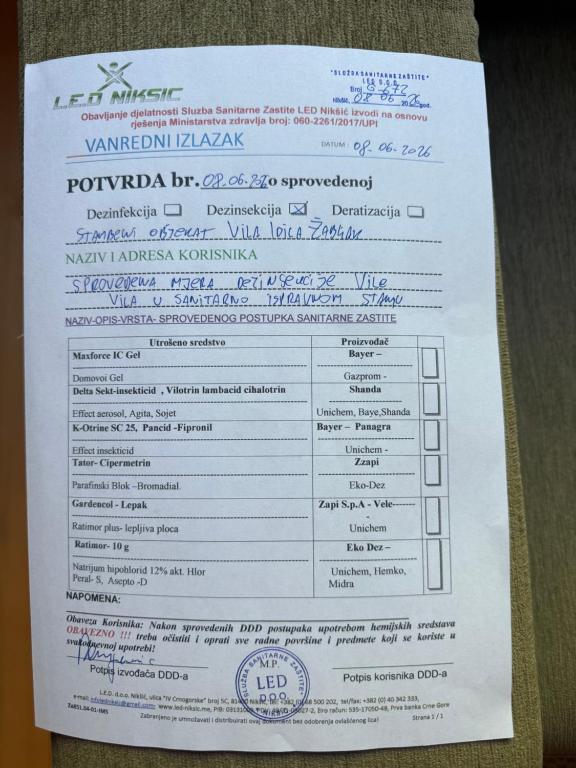 L.E.D NIKSIC
"SLUŽBA SANITARNE ZAŠTITE"
LED D.O.O.
Broj 6-672
NIKŠIĆ, 08 06 2026 god.
Obavljanje djelatnosti Sluzba Sanitarne Zastite LED Nikšić izvodi na osnovu
rješenja Ministarstva zdravlja broj: 060-2261/2017/UPI
VANREDNI IZLAZAK
DATUM : 08. 06. 2026
POTVRDA br. 08.06. o sprovedenoj
Dezinfekcija Dezinsekcija Deratizacija
STAMBENI OBJEKAT VILA ŽABLJAK
NAZIV I ADRESA KORISNIKA
SPROVEDENA MJERA DEZINSEKCIJE VILE
VILA U SANITARNO ISPRAVNOM STANJU
NAZIV-OPIS-VRSTA- SPROVEDENOG POSTUPKA SANITARNE ZASTITE
Utrošeno sredstvo Proizvođač
Maxforce IC Gel Bayer –
Domovoi Gel Gazprom -
Delta Sekt-insekticid , Vilotrin lambacid cihalotrin Shanda
Effect aerosol, Agita, Sojet Unichem, Baye,Shanda
K-Otrine SC 25, Pancid -Fipronil Bayer – Panagra
Effect insekticid Unichem -
Tator- Cipermetrin Zzapi
Parafinski Blok –Bromadial Eko-Dez
Gardencol - Lepak Zapi S.p.A - Vele-------
-
Ratimor plus- lepljiva ploca Unichem
Ratimor- 10 g Eko Dez –
Natrijum hipohlorid 12% akt. Hlor Unichem, Hemko,
Peral- S, Asepto -D Midra
NAPOMENA:
Obaveza Korisnika: Nakon sprovedenih DDD postupaka upotrebom hemijskih sredstava
OBAVEZNO !!! treba očistiti i oprati sve radne površine i predmete koji se koriste u
svakodnevnoj upotrebi!
Potpis izvođača DDD-a
M.P.
SLUŽBA SANITARNE ZAŠTITE
LED
D.O.O.
NIKŠIĆ
Potpis korisnika DDD-a
L.E.D. d.o.o. Nikšić, ulica "IV Crnogorske" broj 5C, 81400 Nikšić, tel: +382 (0) 68 500 202, tel/fax: +382 (0) 40 342 333,
www.led-niksic.me, Žiro račun: 535-17050-48, Prva banka Crne Gore
Zabranjeno je umnožavati i distribuirati ovaj dokument bez odobrenja ovlašćenog lica!
Strana 1 / 1